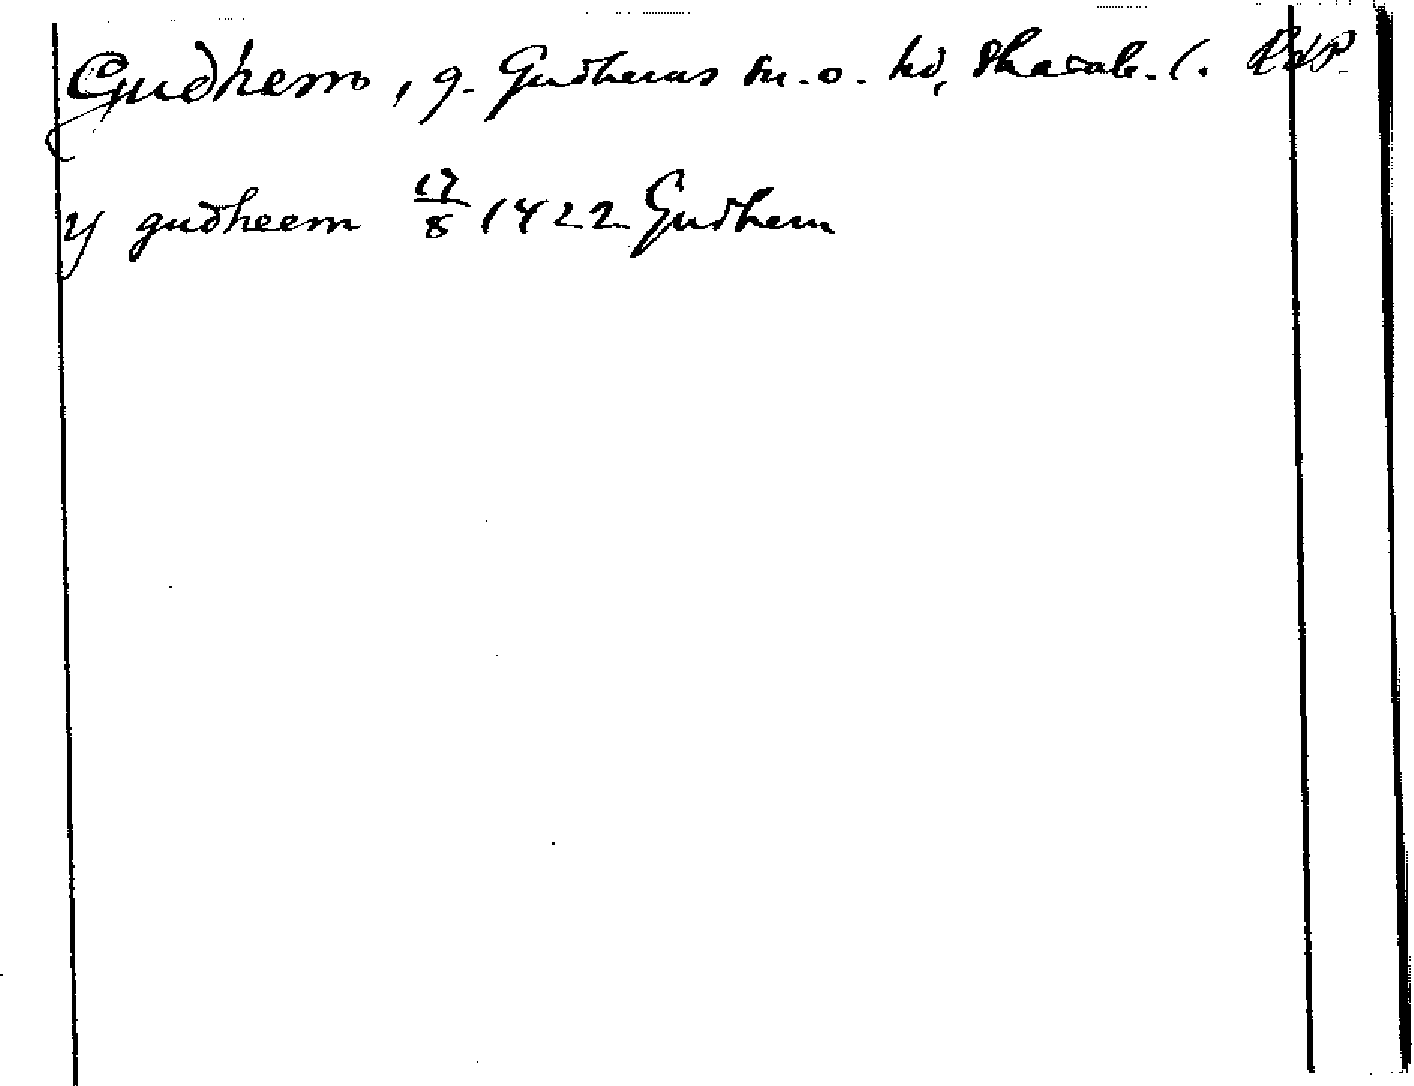 Gudhem, g. Gudhems sn. o. hd, Skarab. l. RAP.
y gudheem 17/8 1422 Gudhem